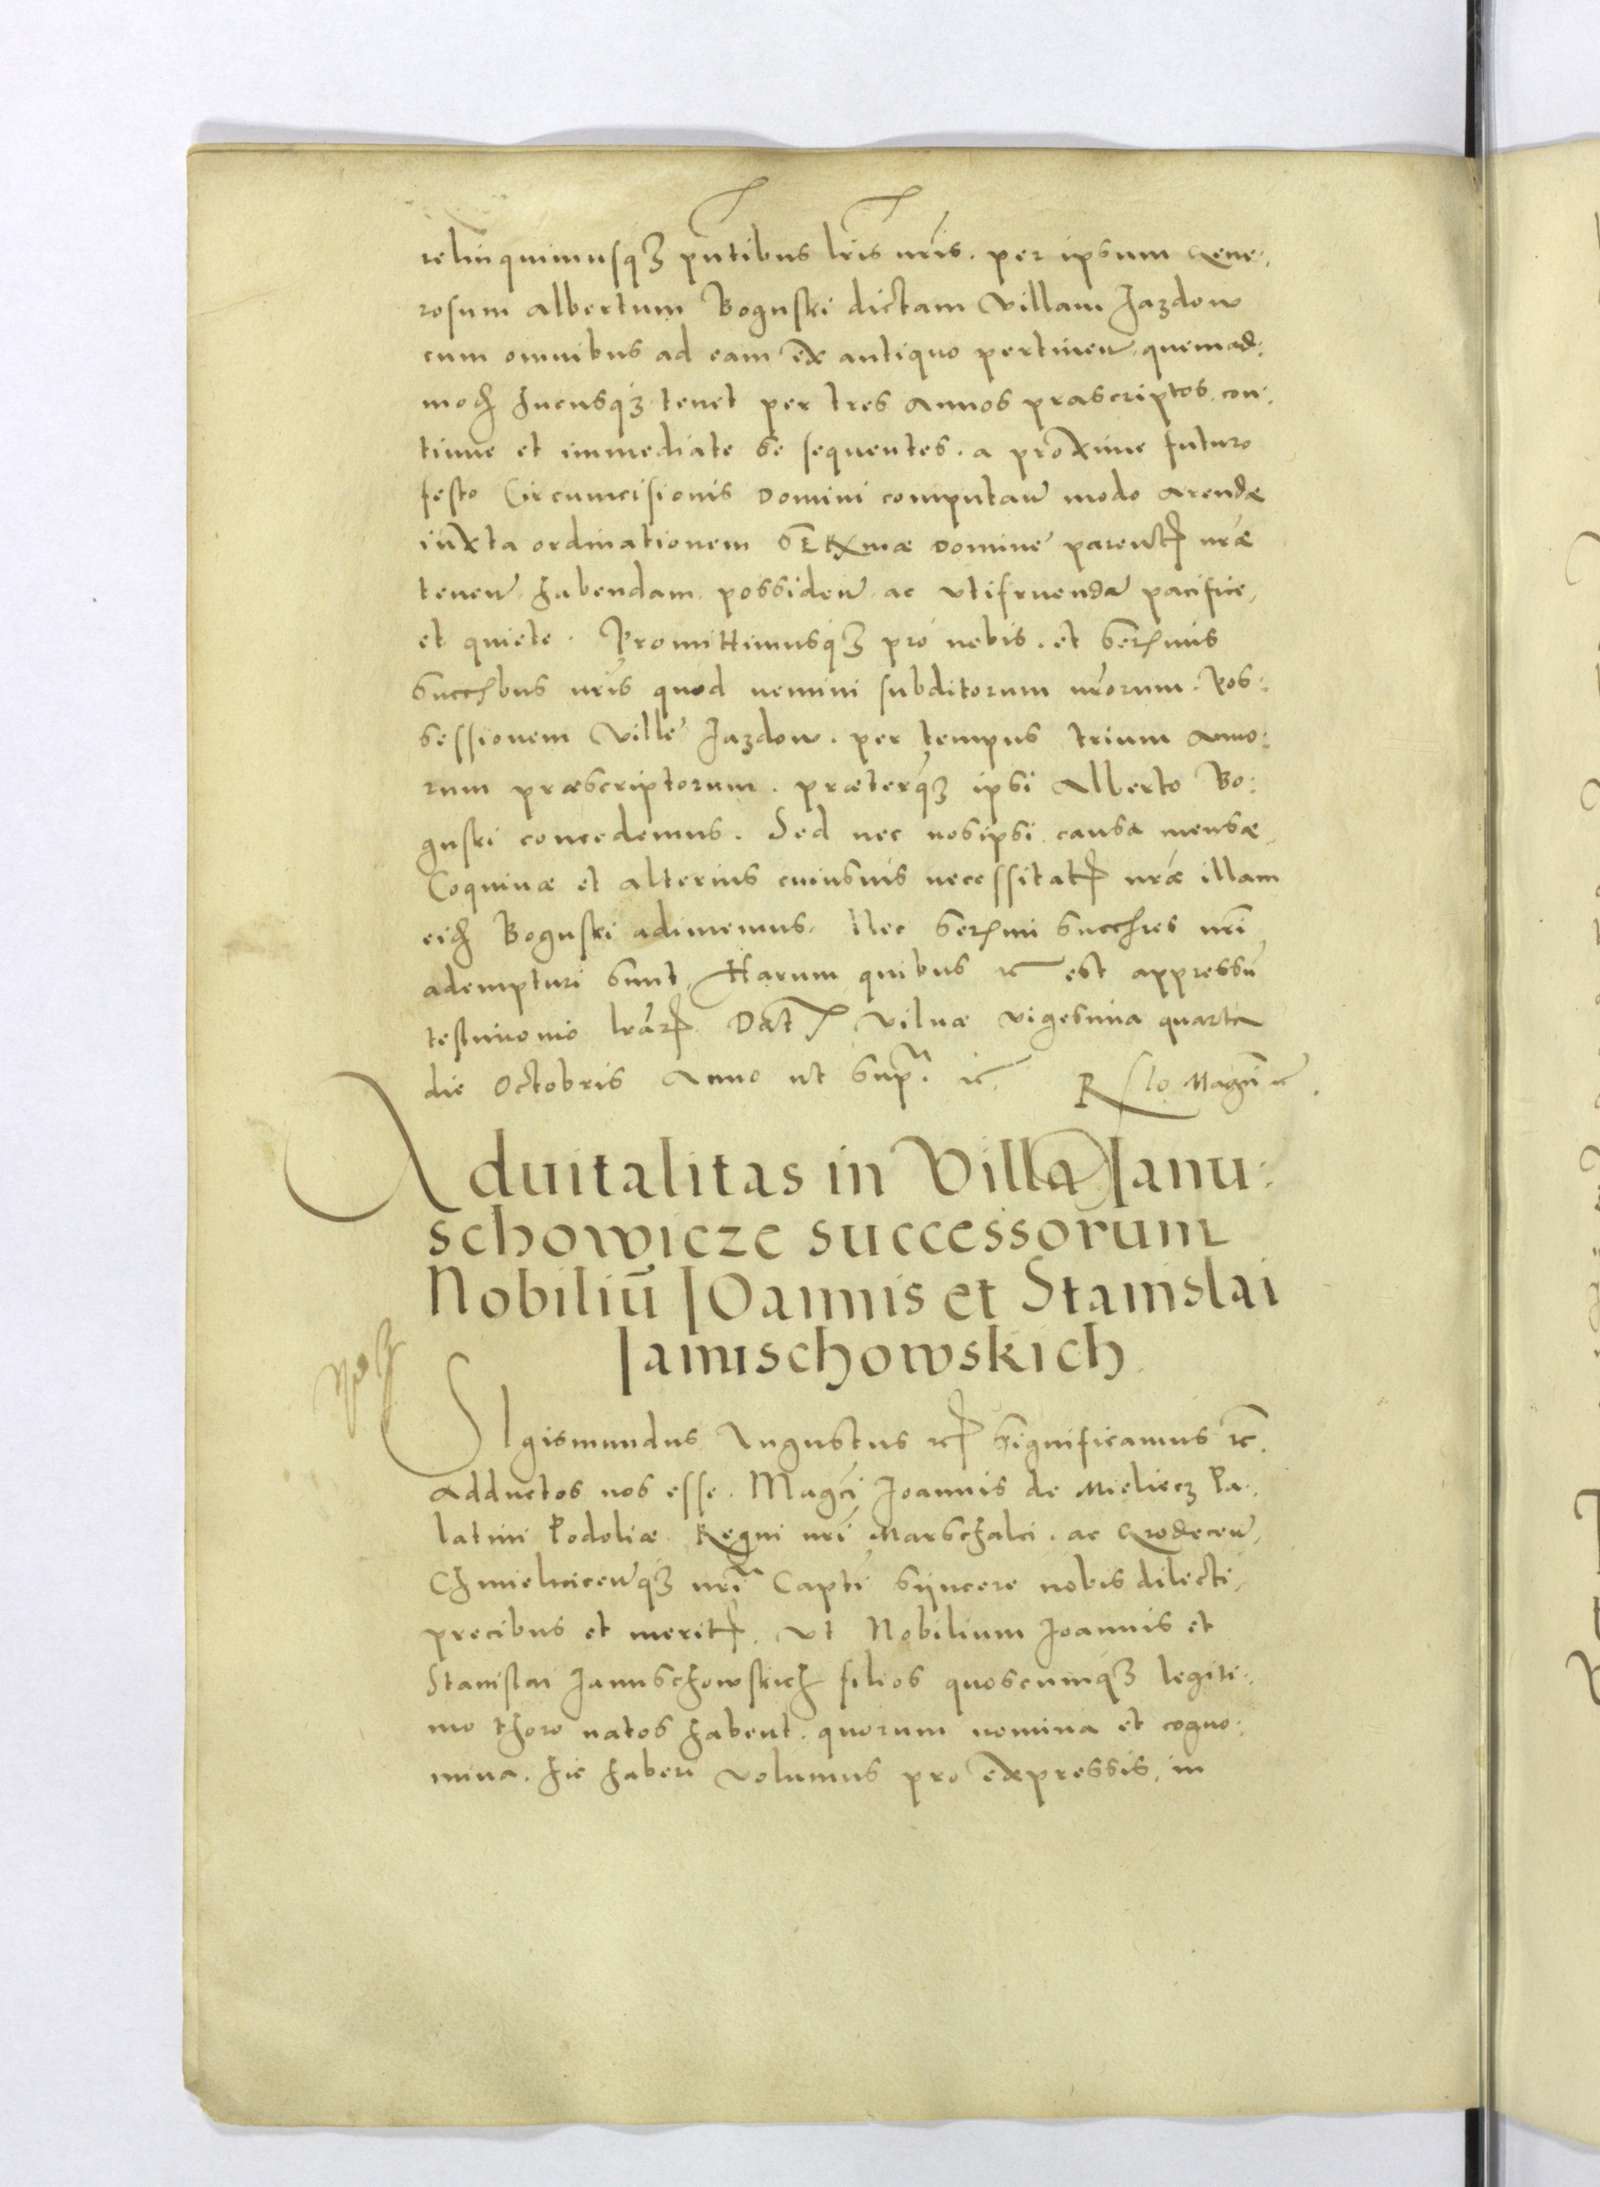 relinquimusq3 pntibus lris nris. per ipsum Gene:
rosum Albertum Boguski dictam villam Jazdow
cum omnibus ad eam ex antiquo pertinen. quemad:
mod hucusq3 tenet per tres Annos præscriptos. con:
tinue et immediate se sequentes. a proxime futuro
festo Circumcisionis Domini computan modo Arendæ
iuxta ordinationem SERmæ Dominæ parentis nræ
tenen. habendam. possiden. ac utifruendam pacifice,
et quiete. Promittimusq3 pro nobis. et Sermis
Succbus nris quod nemini subditorum nrorum. Pos:
sessionem Villæ Jazdow. per tempus trium Anno:
rum præscriptorum. præterq3 ipsi Alberto Bo:
guski concedemus. Sed nec nosipsi causa mensæ,
Coquinæ et alterius cuiusuis necessitatis nræ illam
eid Boguski adimemus. Nec Sermi Succres nri
adempturi sunt, Harum quibus rc est appressu
testimonio lrar. Dat Vilnæ vigesima quarta
die Octobris Anno ut supra. rc. R Magci
Aduitalitas in Villa Janu:
schowicze successorum
Nobiliū IOannis et Stanislai
Januschowskich
SIgismundus Augustus rc Significamus rc.
Adductos nos esse. Magci Joannis de Mieliecz Pa:
latini Podoliæ Regni nri Marschalci. ac Grodecen,
Chmielnicenq3 nri Capti syncere nobis dilecti,
precibus et meritis. Ut Nobilium Joannis et
Stanislai Januschowskich filios quoscunq3 legiti:
mo thoro natos habent. quorum nomina et cogno:
mina. hic haberi volumus pro expressis, in